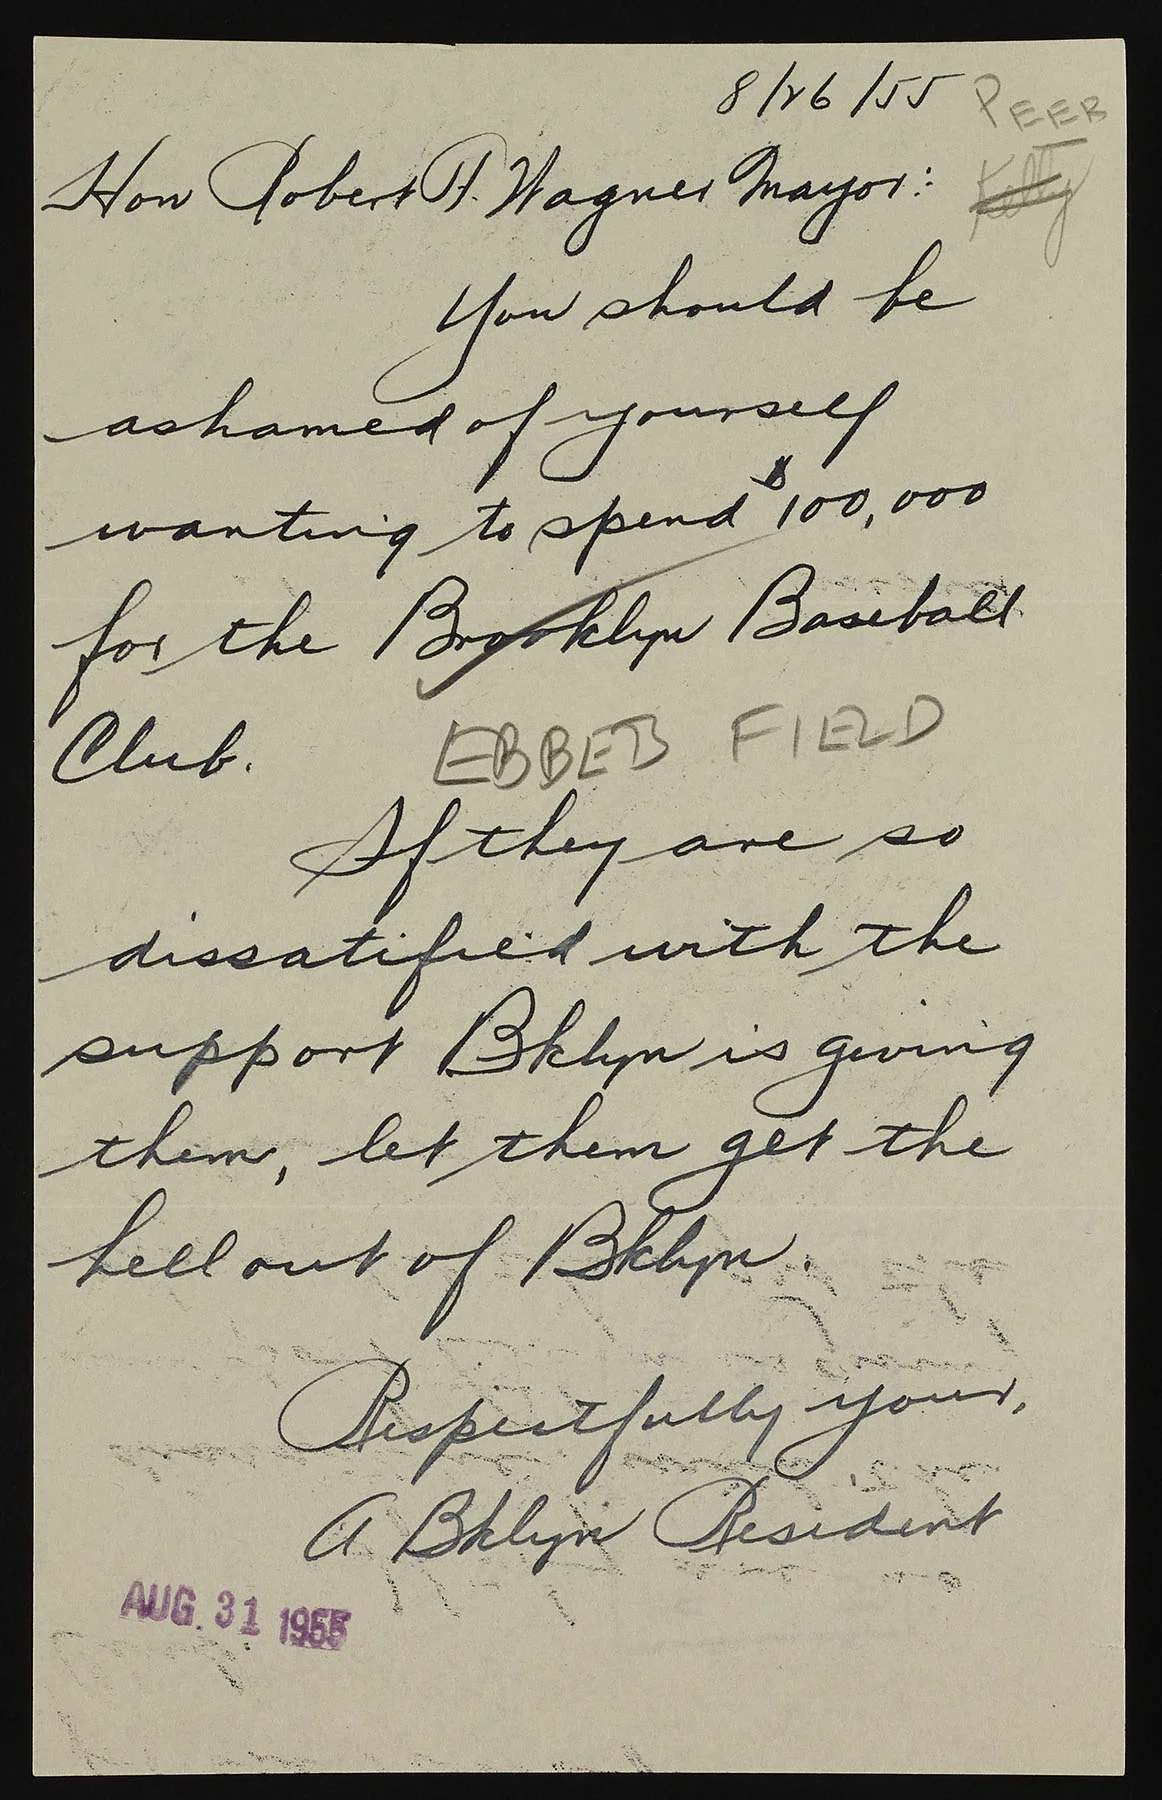 8/26/55 PEER
Hon Robert F. Wagner Mayor: Kelly
You should be
ashamed of yourself
wanting to spend $100,000
for the Brooklyn Baseball
Club. EBBETS FIELD
If they are so
dissatified with the
support Bklyn is giving
them, let them get the
hell out of Bklyn.
Respectfully yours,
A Bklyn Resident
AUG. 31 1955